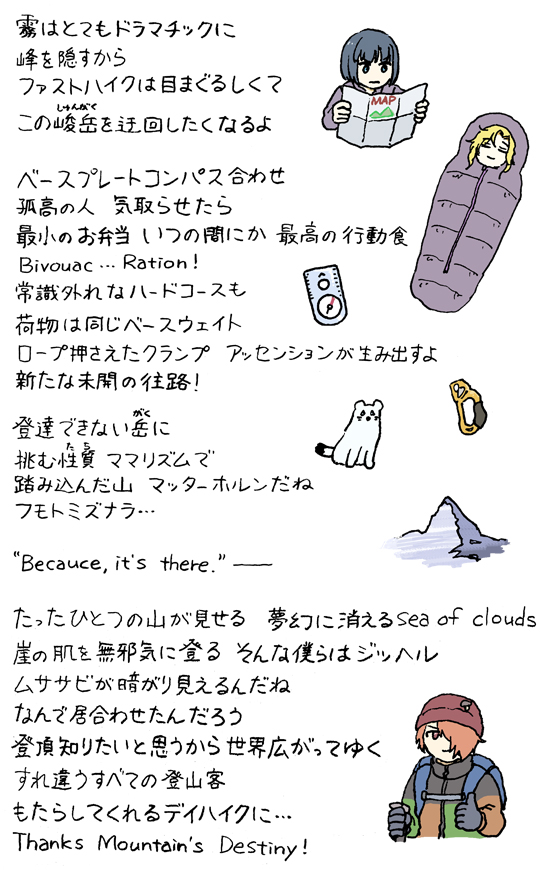 霧はとてもドラマチックに
峰を隠すから
ファストハイクは目まぐるしくて
しゅんがく
この峻岳を迂回したくなるよ
MAP
ベースプレートコンパス合わせ
孤高の人 気取らせたら
最小のお弁当 いつの間にか 最高の行動食
Bivouac… Ration!
常識外れなハードコースも
荷物は同じベースウェイト
ロープ押さえたクランプ アッセンションが生み出すよ
新たな未開の往路!
がく
登達できない岳に
たち
挑む性質 ママリズムで
踏み込んだ山 マッターホルンだね
フモトミズナラ…
"Becauce, it's there." ――
たったひとつの山が見せる 夢幻に消えるsea of clouds
崖の肌を無邪気に登る そんな僕らはジッヘル
ムササビが暗がり見えるんだね
なんで居合わせたんだろう
登頂知りたいと思うから世界広がってゆく
すれ違うすべての登山客
もたらしてくれるデイハイクに…
Thanks Mountain's Destiny!